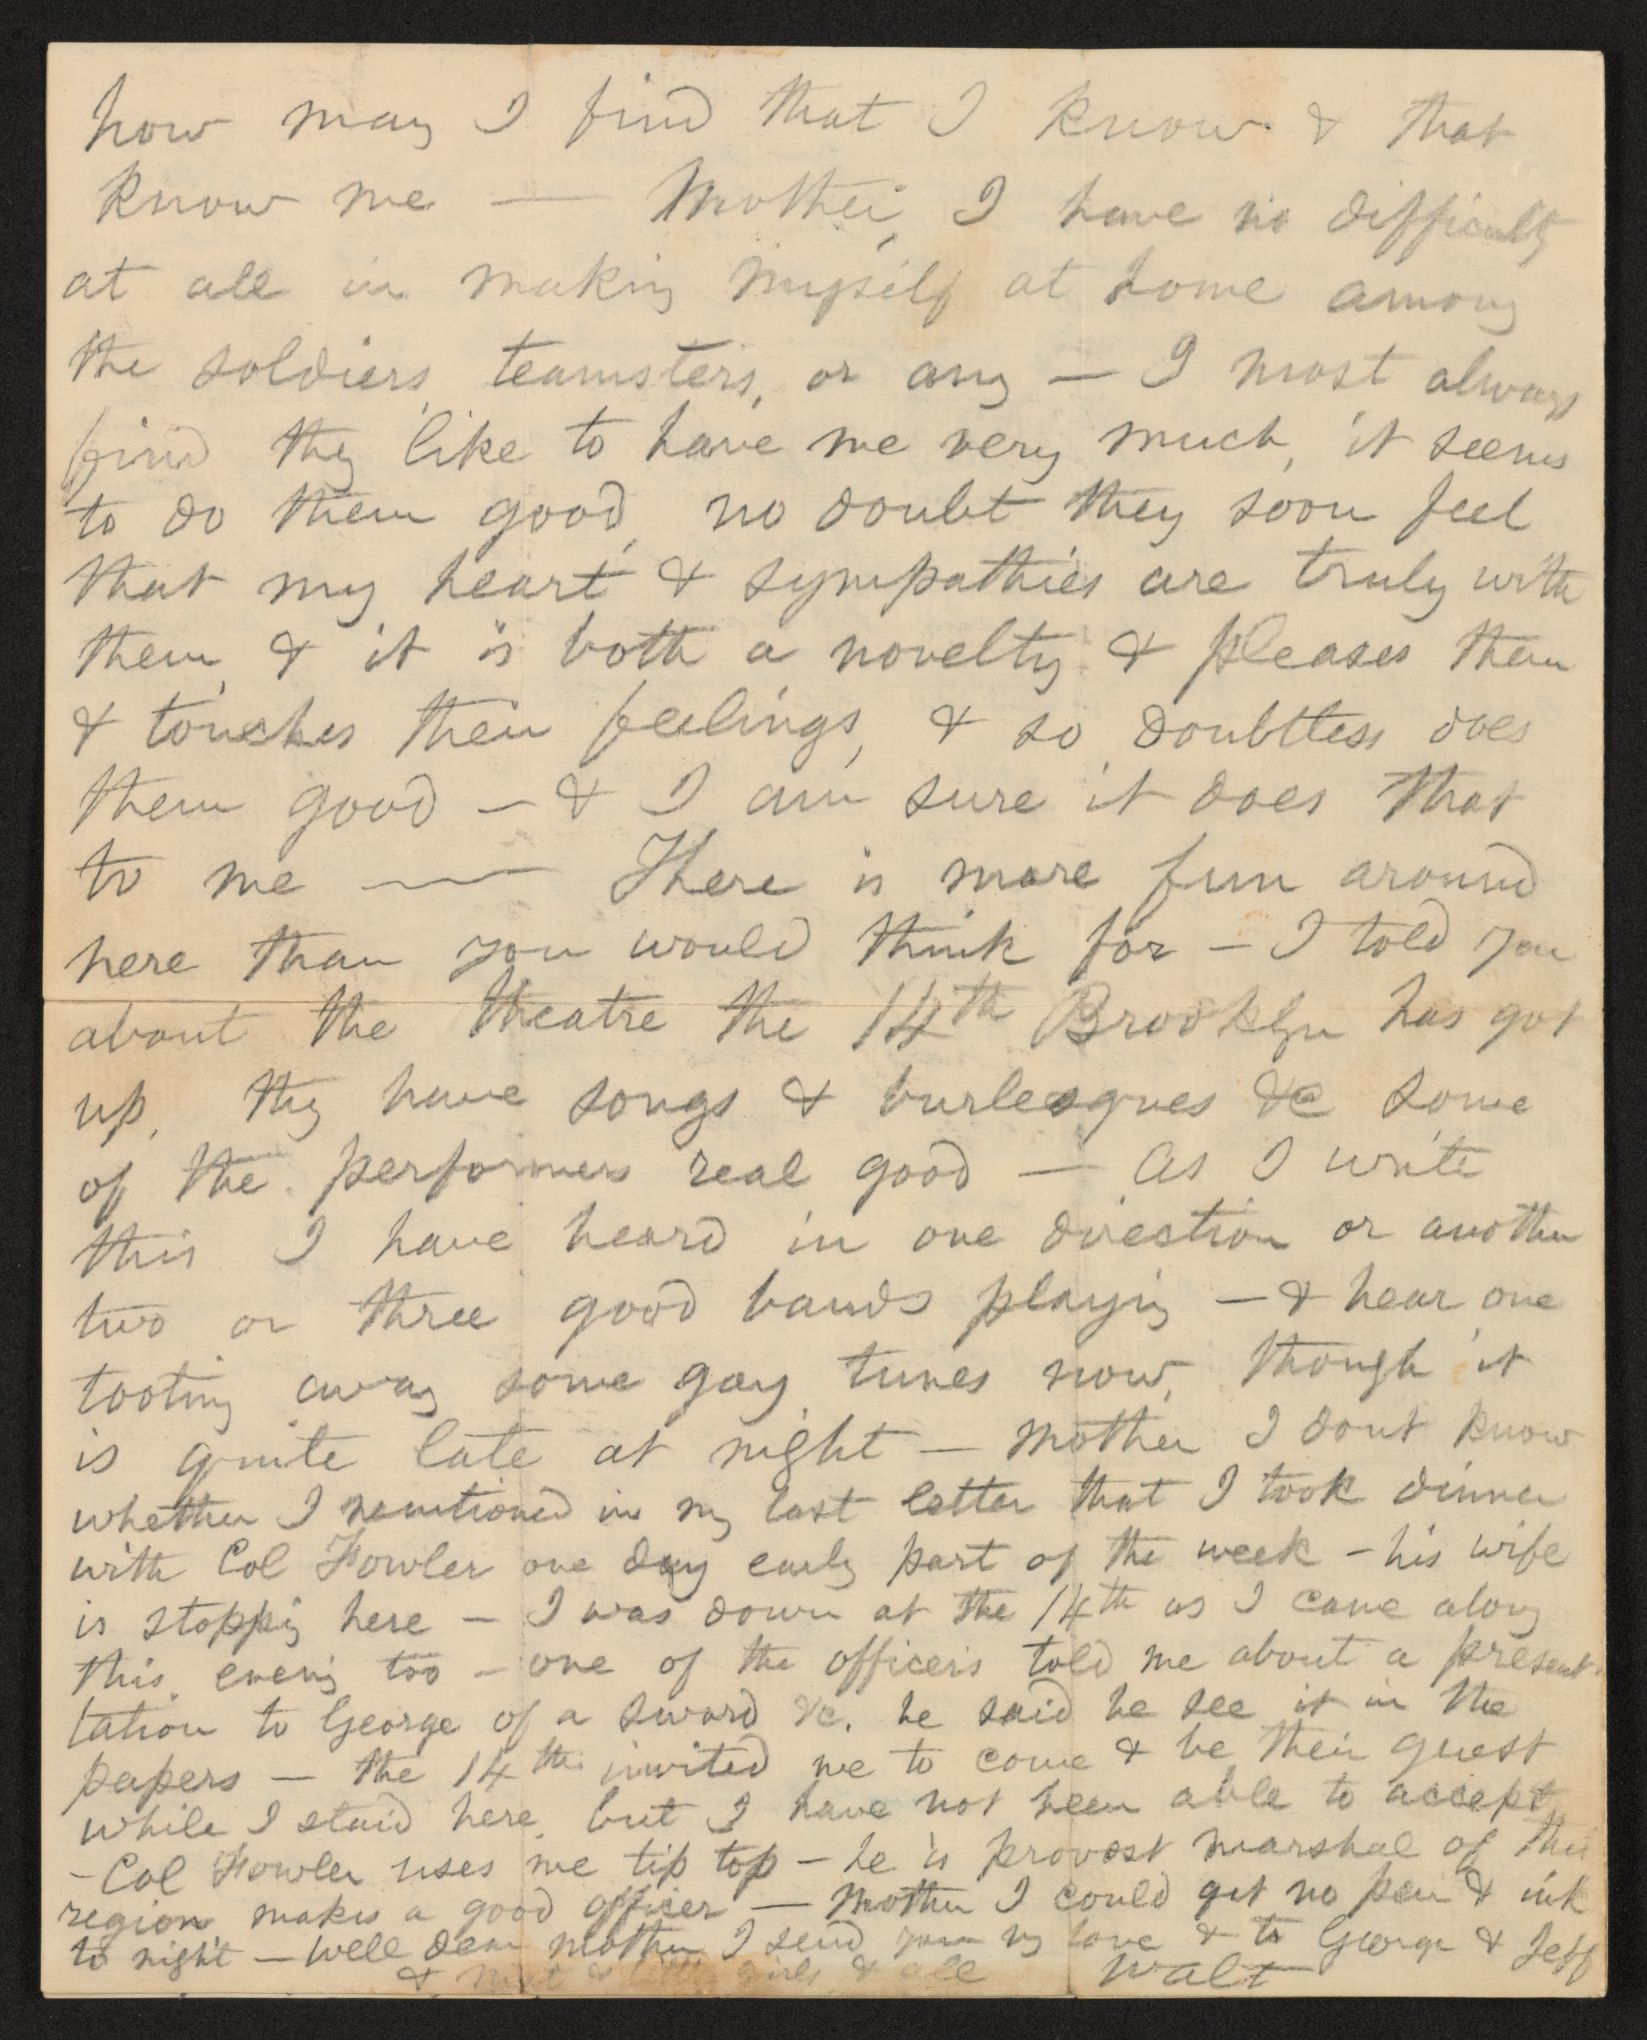 how many I find that I know & that
know me — Mother, I have no difficulty
at all in making myself at home among
the soldiers, teamsters, or any — I most always
find they like to have me very much, it seems
to do them good, no doubt they soon feel
that my heart & sympathies are truly with
them, & it is both a novelty & pleases them
& touches their feelings, & so doubtless does
them good — & I am sure it does that
to me — There is more fun around
here than you would think for — I told you
about the theatre the 14th Brooklyn has got
up, they have songs & burlesques &c some
of the performers real good — As I write
this I have heard in one direction or another
two or three good bands playing — & hear one
tooting away some gay tunes now, though it
is quite late at night — Mother I dont know
whether I mentioned in my last letter that I took dinner
with Col Fowler one day early part of the week — his wife
is stopping here — I was down at the 14th as I came along
this evening too — one of the officers told me about a present-
tation to George of a sword &c. he said he see it in the
papers — the 14th invited me to come & be their guest
while I staid here, but I have not been able to accept
— Col Fowler uses me tip top — he is provost marshal of this
region makes a good officer — Mother I could get no pen & ink
to night — Well dear mother I send you my love & to George & Jeff
& Mat & little girls & all Walt